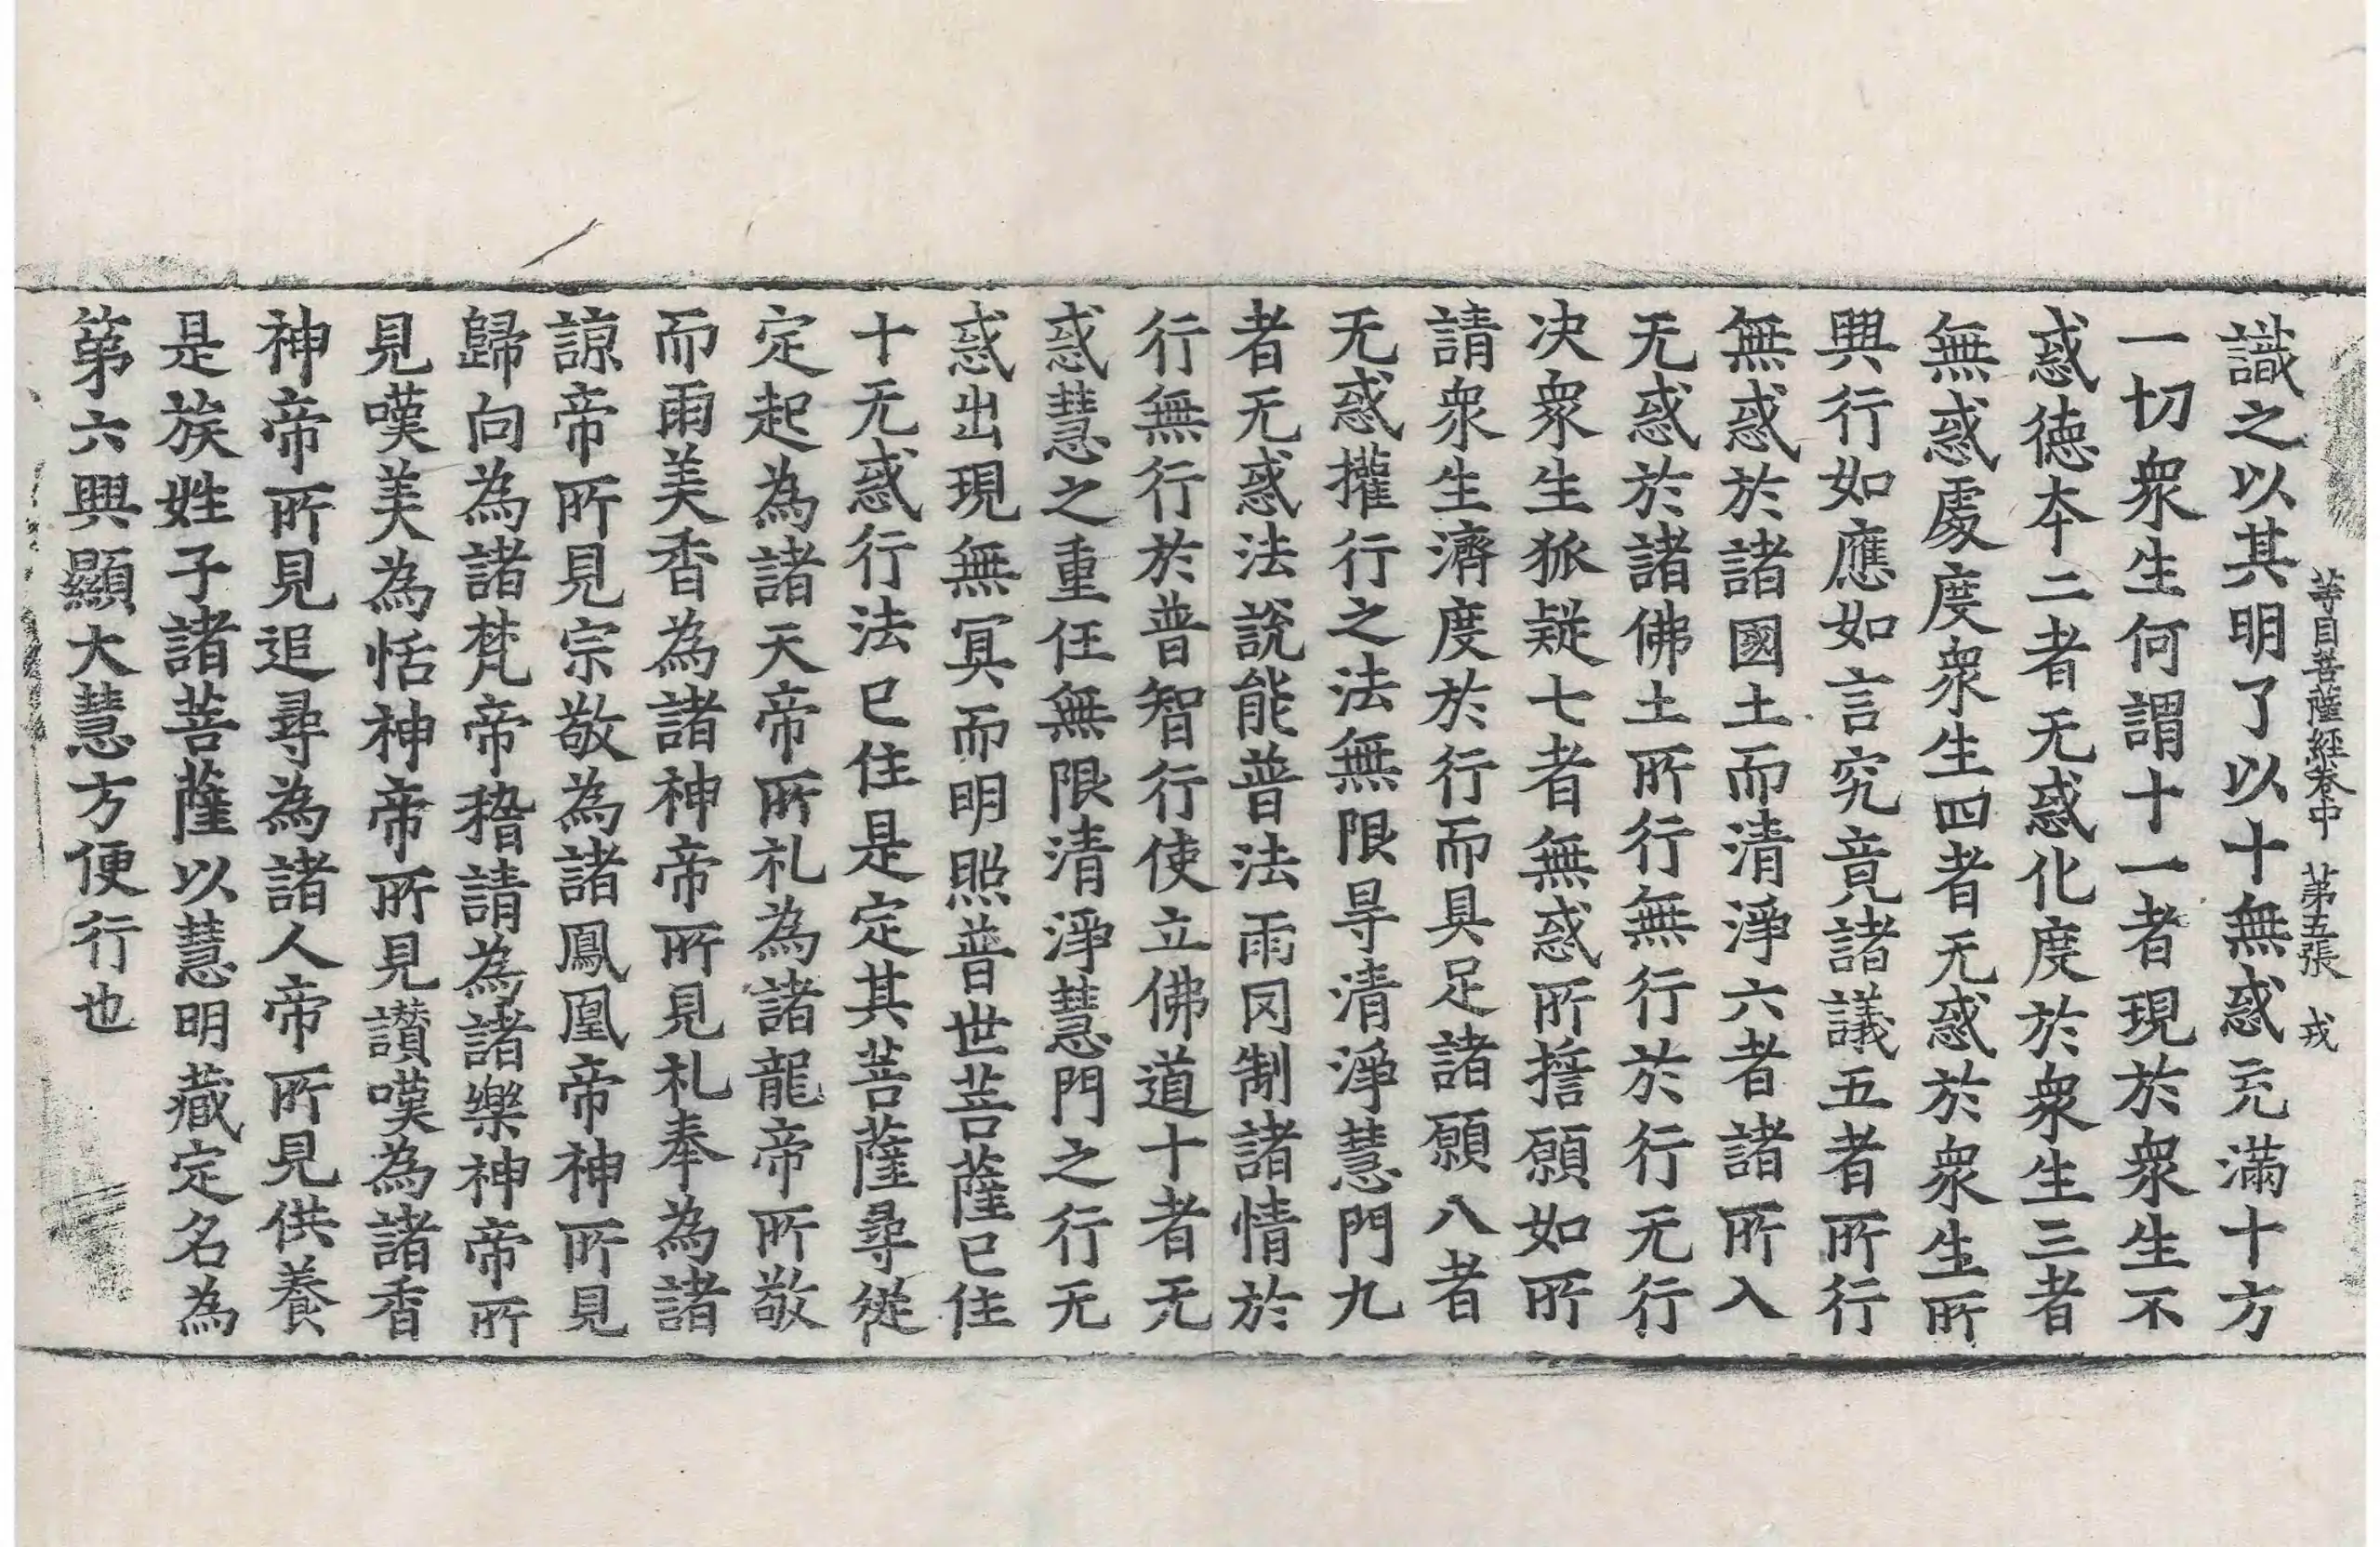 等目菩薩經卷中 第五張 戎
識之以其明了以十無惑充滿十方
一切衆生何謂十一者現於衆生不
惑德本二者无惑化度於衆生三者
無惑處度衆生四者无惑於衆生所
興行如應如言究竟諸議五者所行
無惑於諸國土而清淨六者諸所入
无惑於諸佛土所行無行於行无行
决衆生狐疑七者無惑所擔願如所
請衆生濟度於行而具足諸願八者
无惑攉行之法無限㝵清淨慧門九
者无惑法說能普法雨罔制諸情於
行無行於普智行使立佛道十者无
惑慧之重任無限清淨慧門之行无
惑出現無冥而明照普世菩薩已住
十无惑行法已住是定其菩薩尋從
定起為諸天帝所礼為諸龍帝所敬
而雨美香為諸神帝所見礼奉為諸
諒帝所見宗敬為諸鳳凰帝神所見
歸向為諸梵帝稽請為諸樂神帝所
見嘆美為恬神帝所見讚嘆為諸香
神帝所見追尋為諸人帝所見供養
是族姓子諸菩薩以慧明藏定名為
第六興顯大慧方便行也